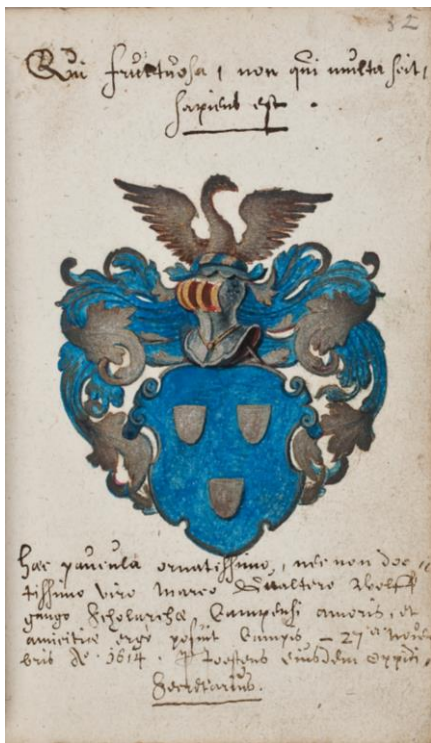 52
Qui fructuosa, non qui multa scit,
sapiens est.
Haec paucula ornatissimo, nec non doc-
tissimo viro Marco Gualtero Wolff
gango Scholarchae Campensi amoris, et
amicitiae ergo posuit Campis - 27a Novem
bris Ao. 1614. eiusdem oppidi,
Secretarius.